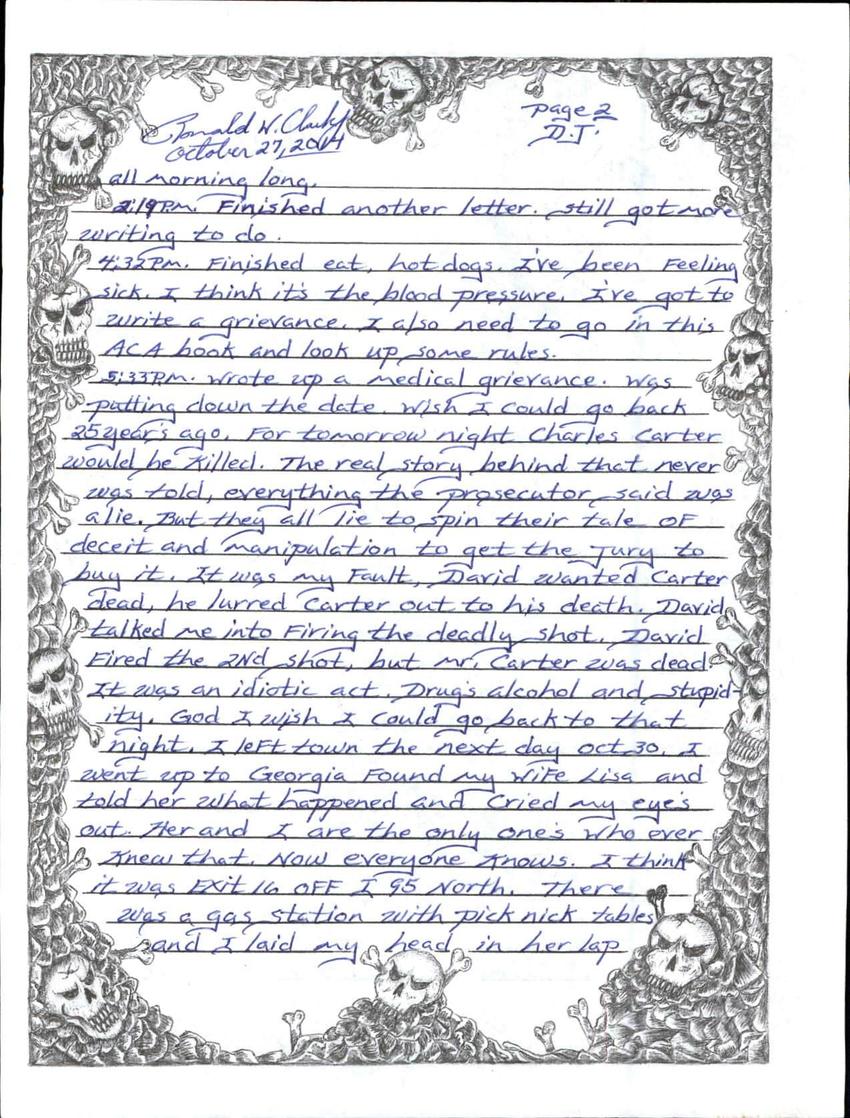 Ronald W. Clark Jr
October 27, 2014
page 2
D.J.
all morning long.
2:19 P.M. Finished another letter. still got more
writing to do.
4:32 P.M. Finished eat, hot dogs. I've been Feeling
sick. I think it's the blood pressure. I've got to
write a grievance. I also need to go in this
ACA book and look up some rules.
5:33 P.M. Wrote up a medical grievance. Was
putting down the date. Wish I could go back
25 year's ago. For tomorrow night Charles Carter
would be Killed. The real story behind that never
was told, everything the prosecutor said was
a lie. But they all lie to spin their tale OF
deceit and manipulation to get the Jury to
buy it. It was my Fault, David wanted Carter
dead, he lurred Carter out to his death. David
talked me into Firing the deadly shot. David
Fired the 2nd shot, but Mr. Carter was dead.
It was an idiotic act. Drug's alcohol and stupid-
ity. God I wish I could go back to that
night. I left town the next day Oct. 30. I
went up to Georgia Found my Wife Lisa and
told her what happened and Cried my eye's
out. Her and I are the only one's who ever
Knew that. Now everyone Knows. I think
it was EXit 16 OFF I 95 North. There
was a gas station with pick nick tables
and I laid my head in her lap